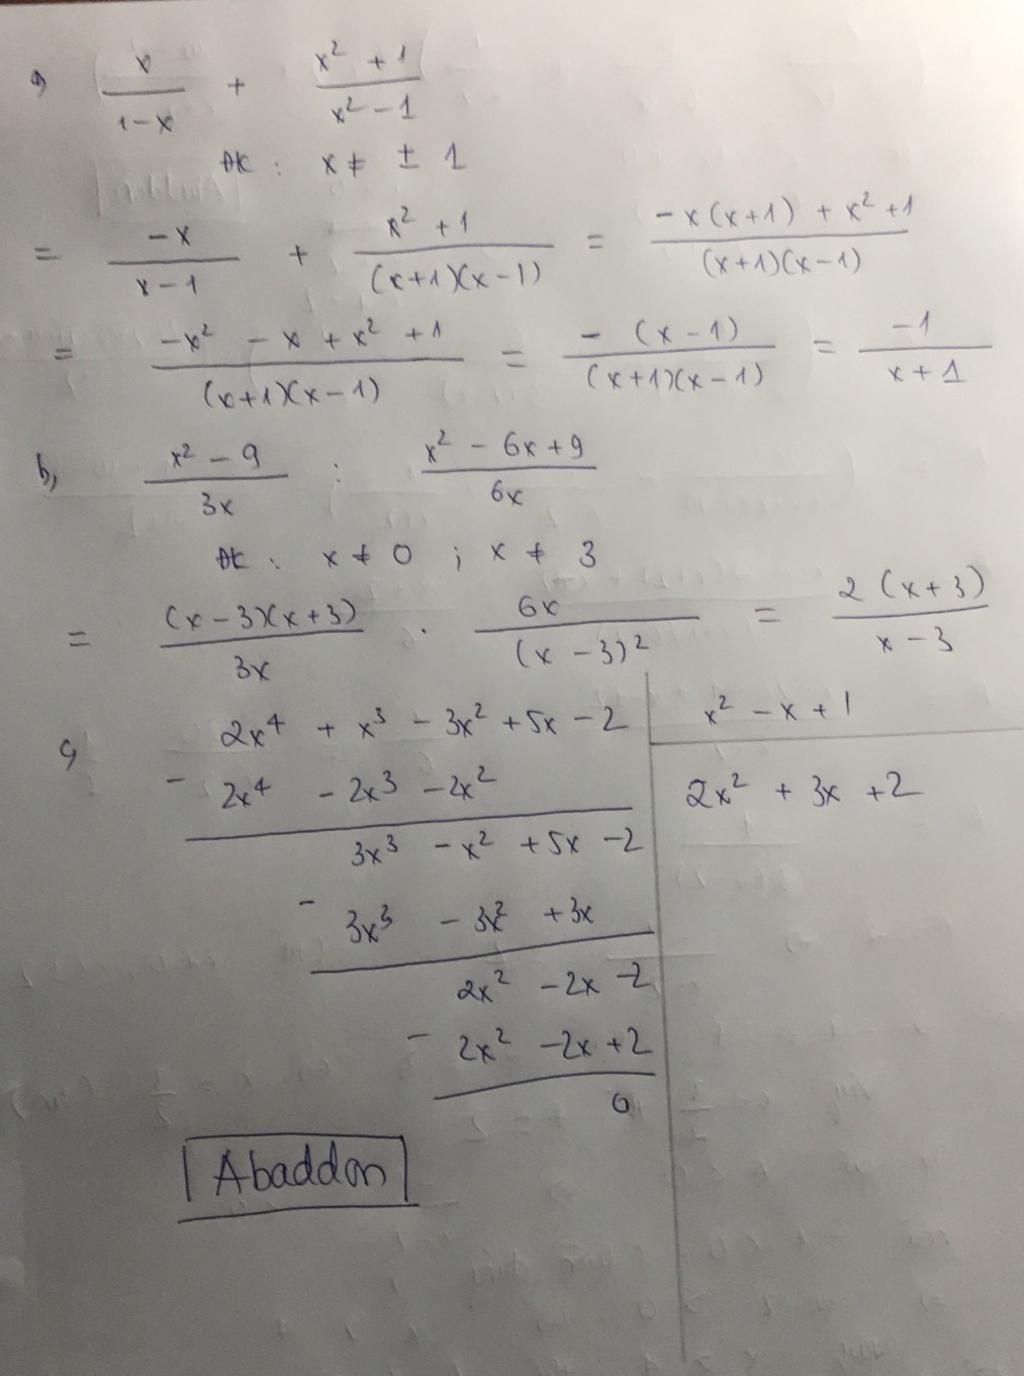 a, x/(1-x) + (x² + 1)/(x² - 1)
ĐK : x ≠ ± 1
= -x/(x-1) + (x² + 1)/((x+1)(x-1)) = (-x(x+1) + x² + 1)/((x+1)(x-1))
= (-x² - x + x² + 1)/((x+1)(x-1)) = -(x-1)/((x+1)(x-1)) = -1/(x+1)
b, (x² - 9)/3x : (x² - 6x + 9)/6x
ĐK : x ≠ 0 ; x ≠ 3
= (x-3)(x+3)/3x . 6x/(x-3)² = 2(x+3)/(x-3)
c, 2x⁴ + x³ - 3x² + 5x - 2 | x² - x + 1
- 2x⁴ - 2x³ - 2x² | 2x² + 3x + 2
3x³ - x² + 5x - 2
- 3x³ - 3x² + 3x
2x² - 2x - 2
- 2x² - 2x + 2
0
Abaddon